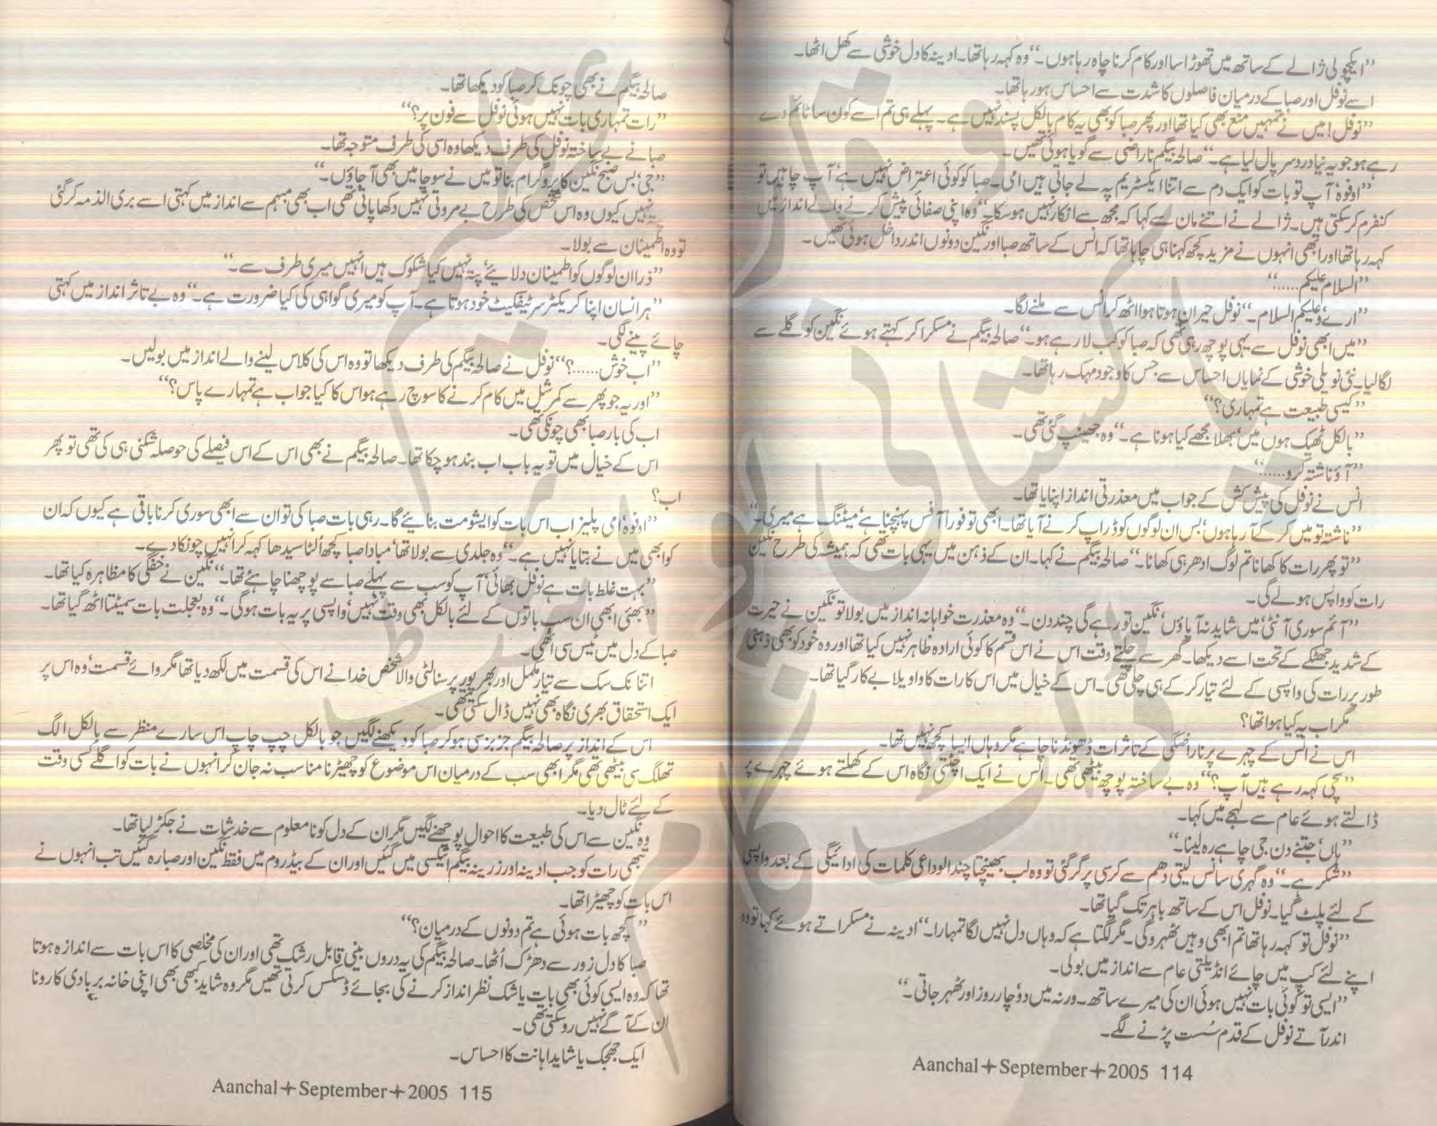 ”ایکچولی ژالے کے ساتھ میں تھوڑا سا اور کام کرنا چاہ رہا ہوں۔“ وہ کہہ رہا تھا۔ اوینہ کا دل خوشی سے کھل اٹھا۔
اسے نوفل اور صبا کے درمیان فاصلوں کا شدت سے احساس ہو رہا تھا۔
”نوفل! میں نے تمہیں منع بھی کیا تھا اور پھر صبا کو بھی یہ کام بالکل پسند نہیں ہے۔ پہلے ہی تم اسے کون سا ٹائم دے
رہے ہو جو یہ نیا درد سر پال لیا ہے۔“ صالحہ بیگم ناراضی سے گویا ہوئی تھیں۔
”اوفوہ! آپ تو بات کو ایک دم سے اتنا ایکسٹریم پہ لے جاتی ہیں امی۔ صبا کو کوئی اعتراض نہیں ہے‘ آپ چاہیں تو
کنفرم کر سکتی ہیں۔ ژالے نے اتنے مان سے کہا کہ مجھ سے انکار نہیں ہو سکا۔“ وہ اپنی صفائی پیش کرنے والے انداز میں
کہہ رہا تھا اور ابھی انہوں نے مزید کچھ کہنا ہی چاہا تھا کہ انس کے ساتھ صبا اور نگین دونوں اندر داخل ہوئی تھیں۔
”السلام علیکم......“
”ارے‘ وعلیکم السلام۔“ نوفل حیران ہوتا ہوا اٹھ کر انس سے ملنے لگا۔
”میں ابھی نوفل سے یہی پوچھ رہی تھی کہ صبا کو کب لا رہے ہو۔“ صالحہ بیگم نے مسکرا کر کہتے ہوئے نگین کو گلے سے
لگا لیا۔ نئی نویلی خوشی کے نمایاں احساس سے جس کا وجود مہک رہا تھا۔
”کیسی طبیعت ہے تمہاری؟“
”بالکل ٹھیک ہوں میں‘ بھلا مجھے کیا ہونا ہے۔“ وہ جھینپ گئی تھی۔
”آؤ ناشتہ کرو......“
انس نے نوفل کی پیش کش کے جواب میں معذرتی انداز اپنایا تھا۔
”ناشتہ تو میں کر کے آ رہا ہوں‘ بس ان لوگوں کو ڈراپ کرنے آیا تھا۔ ابھی تو فوراً آفس پہنچنا ہے‘ میٹنگ ہے میری۔“
”تو پھر رات کا کھانا تم لوگ ادھر ہی کھانا۔“ صالحہ بیگم نے کہا۔ ان کے ذہن میں یہی بات تھی کہ ہمیشہ کی طرح نگین
رات کو واپس ہولے گی۔
”آئم سوری آنٹی‘ میں شاید نہ آ پاؤں‘ نگین تو رہے گی چند دن۔“ وہ معذرت خواہانہ انداز میں بولا تو نگین نے حیرت
کے شدید جھٹکے کے تحت اسے دیکھا۔ گھر سے چلتے وقت اس نے اس قسم کا کوئی ارادہ ظاہر نہیں کیا تھا اور وہ خود کو بھی ذہنی
طور پر رات کی واپسی کے لئے تیار کر کے ہی چلی تھی۔ اس کے خیال میں اس کا رات کا واویلا بے کار گیا تھا۔
مگر اب یہ کیا ہوا تھا؟
اس نے انس کے چہرے پر ناراضگی کے تاثرات ڈھونڈنا چاہے مگر وہاں ایسا کچھ نہیں تھا۔
”سچی کہہ رہے ہیں آپ؟“ وہ بے ساختہ پوچھ بیٹھی تھی۔ انس نے ایک اچٹتی نگاہ اس کے کھلتے ہوئے چہرے پر
ڈالتے ہوئے عام سے لہجے میں کہا۔
”ہاں‘ جتنے دن جی چاہے رہ لینا۔“
”شکر ہے۔“ وہ گہری سانس لیتی دھم سے کرسی پر گر گئی تو وہ لب بھینچتا چند الوداعی کلمات کی ادائیگی کے بعد واپسی
کے لئے پلٹ گیا۔ نوفل اس کے ساتھ باہر تک گیا تھا۔
”نوفل تو کہہ رہا تھا تم ابھی وہیں ٹھہرو گی۔ مگر لگتا ہے کہ وہاں دل نہیں لگا تمہارا۔“ اوینہ نے مسکراتے ہوئے کہا تو وہ
اپنے لئے کپ میں چائے انڈیلتی عام سے انداز میں بولی۔
”ایسی تو کوئی بات نہیں ہوئی ان کی میرے ساتھ۔ ورنہ میں دو‘ چار روز اور ٹھہر جاتی۔“
اندر آتے نوفل کے قدم سست پڑنے لگے۔
Aanchal+September+2005 114
صالحہ بیگم نے بھی چونک کر صبا کو دیکھا تھا۔
”رات تمہاری بات نہیں ہوئی نوفل سے فون پر؟“
صبا نے بے ساختہ نوفل کی طرف دیکھا وہ اسی کی طرف متوجہ تھا۔
”جی‘ بس صبح نگین کا پروگرام بنا تو میں نے سوچا میں بھی آ جاؤں۔“
نہیں کیوں وہ اس شخص کی طرح بے مروتی نہیں دکھا پاتی تھی اب بھی مبہم سے انداز میں کہتی اسے بری الذمہ کر گئی
تو وہ اطمینان سے بولا۔
”ذرا ان لوگوں کو اطمینان دلایئے‘ پتہ نہیں کیا شکوک ہیں انہیں میری طرف سے۔“
”ہر انسان اپنا کریکٹر سرٹیفکیٹ خود ہوتا ہے۔ آپ کو میری گواہی کی کیا ضرورت ہے۔“ وہ بے تاثر انداز میں کہتی
چائے پینے لگی۔
”اب خوش......؟“ نوفل نے صالحہ بیگم کی طرف دیکھا تو وہ اس کی کلاس لینے والے انداز میں بولیں۔
”اور یہ جو پھر سے کمرشل میں کام کرنے کا سوچ رہے ہو اس کا کیا جواب ہے تمہارے پاس؟“
اب کی بار صبا بھی چونکی تھی۔
اس کے خیال میں تو یہ باب اب بند ہو چکا تھا۔ صالحہ بیگم نے بھی اس کے اس فیصلے کی حوصلہ شکنی ہی کی تھی تو پھر
اب؟
”اوفوہ‘ امی پلیز اب اس بات کو ایشو مت بنایئے گا۔ رہی بات صبا کی تو ان سے ابھی سوری کرنا باقی ہے کیوں کہ ان
کو ابھی میں نے بتایا نہیں ہے۔“ وہ جلدی سے بولا تھا‘ مبادا صبا کچھ الٹا سیدھا کہہ کر انہیں چونکا دے۔
”بہت غلط بات ہے نوفل بھائی‘ آپ کو سب سے پہلے صبا سے پوچھنا چاہئے تھا۔“ نگین نے خفگی کا مظاہرہ کیا تھا۔
”بھئی ابھی ان سب باتوں کے لئے بالکل بھی وقت نہیں‘ واپسی پر یہ بات ہو گی۔“ وہ بعجلت بات سمیٹتا اٹھ گیا تھا۔
صبا کے دل میں ٹیس سی اٹھی۔
اتنا نک سک سے تیار مکمل اور بھرپور پرسنالٹی والا شخص خدا نے اس کی قسمت میں لکھ دیا تھا مگر وائے قسمت‘ وہ اس پر
ایک استحقاق بھری نگاہ بھی نہیں ڈال سکتی تھی۔
اس کے انداز پر صالحہ بیگم جزبز سی ہو کر صبا کو دیکھنے لگیں جو بالکل چپ چاپ اس سارے منظر سے بالکل الگ
تھلگ سی بیٹھی تھی مگر ابھی سب کے درمیان اس موضوع کو چھیڑنا مناسب نہ جان کر انہوں نے بات کو اگلے کسی وقت
کے لئے ٹال دیا۔
وہ نگین سے اس کی طبیعت کا احوال پوچھنے لگیں مگر ان کے دل کو نامعلوم سے خدشات نے جکڑ لیا تھا۔
تبھی رات کو جب ادینہ اور زرینہ بیگم انیکسی میں گئیں اور ان کے بیڈروم میں فقط نگین اور صبا رہ گئیں تب انہوں نے
اس بات کو چھیڑا تھا۔
”کچھ بات ہوئی ہے تم دونوں کے درمیان؟“
صبا کا دل زور سے دھڑک اٹھا۔ صالحہ بیگم کی یہ دروں بینی قابل رشک تھی اور ان کی مخلصی کا اس بات سے اندازہ ہوتا
تھا کہ وہ ایسی کوئی بھی بات یا شک نظر انداز کرنے کی بجائے ڈسکس کرتی تھیں مگر وہ شاید کبھی بھی اپنی خانہ بربادی کا رونا
ان کے آگے نہیں رو سکتی تھی۔
ایک جھجک یا شاید اہانت کا احساس۔
Aanchal+September+2005 115